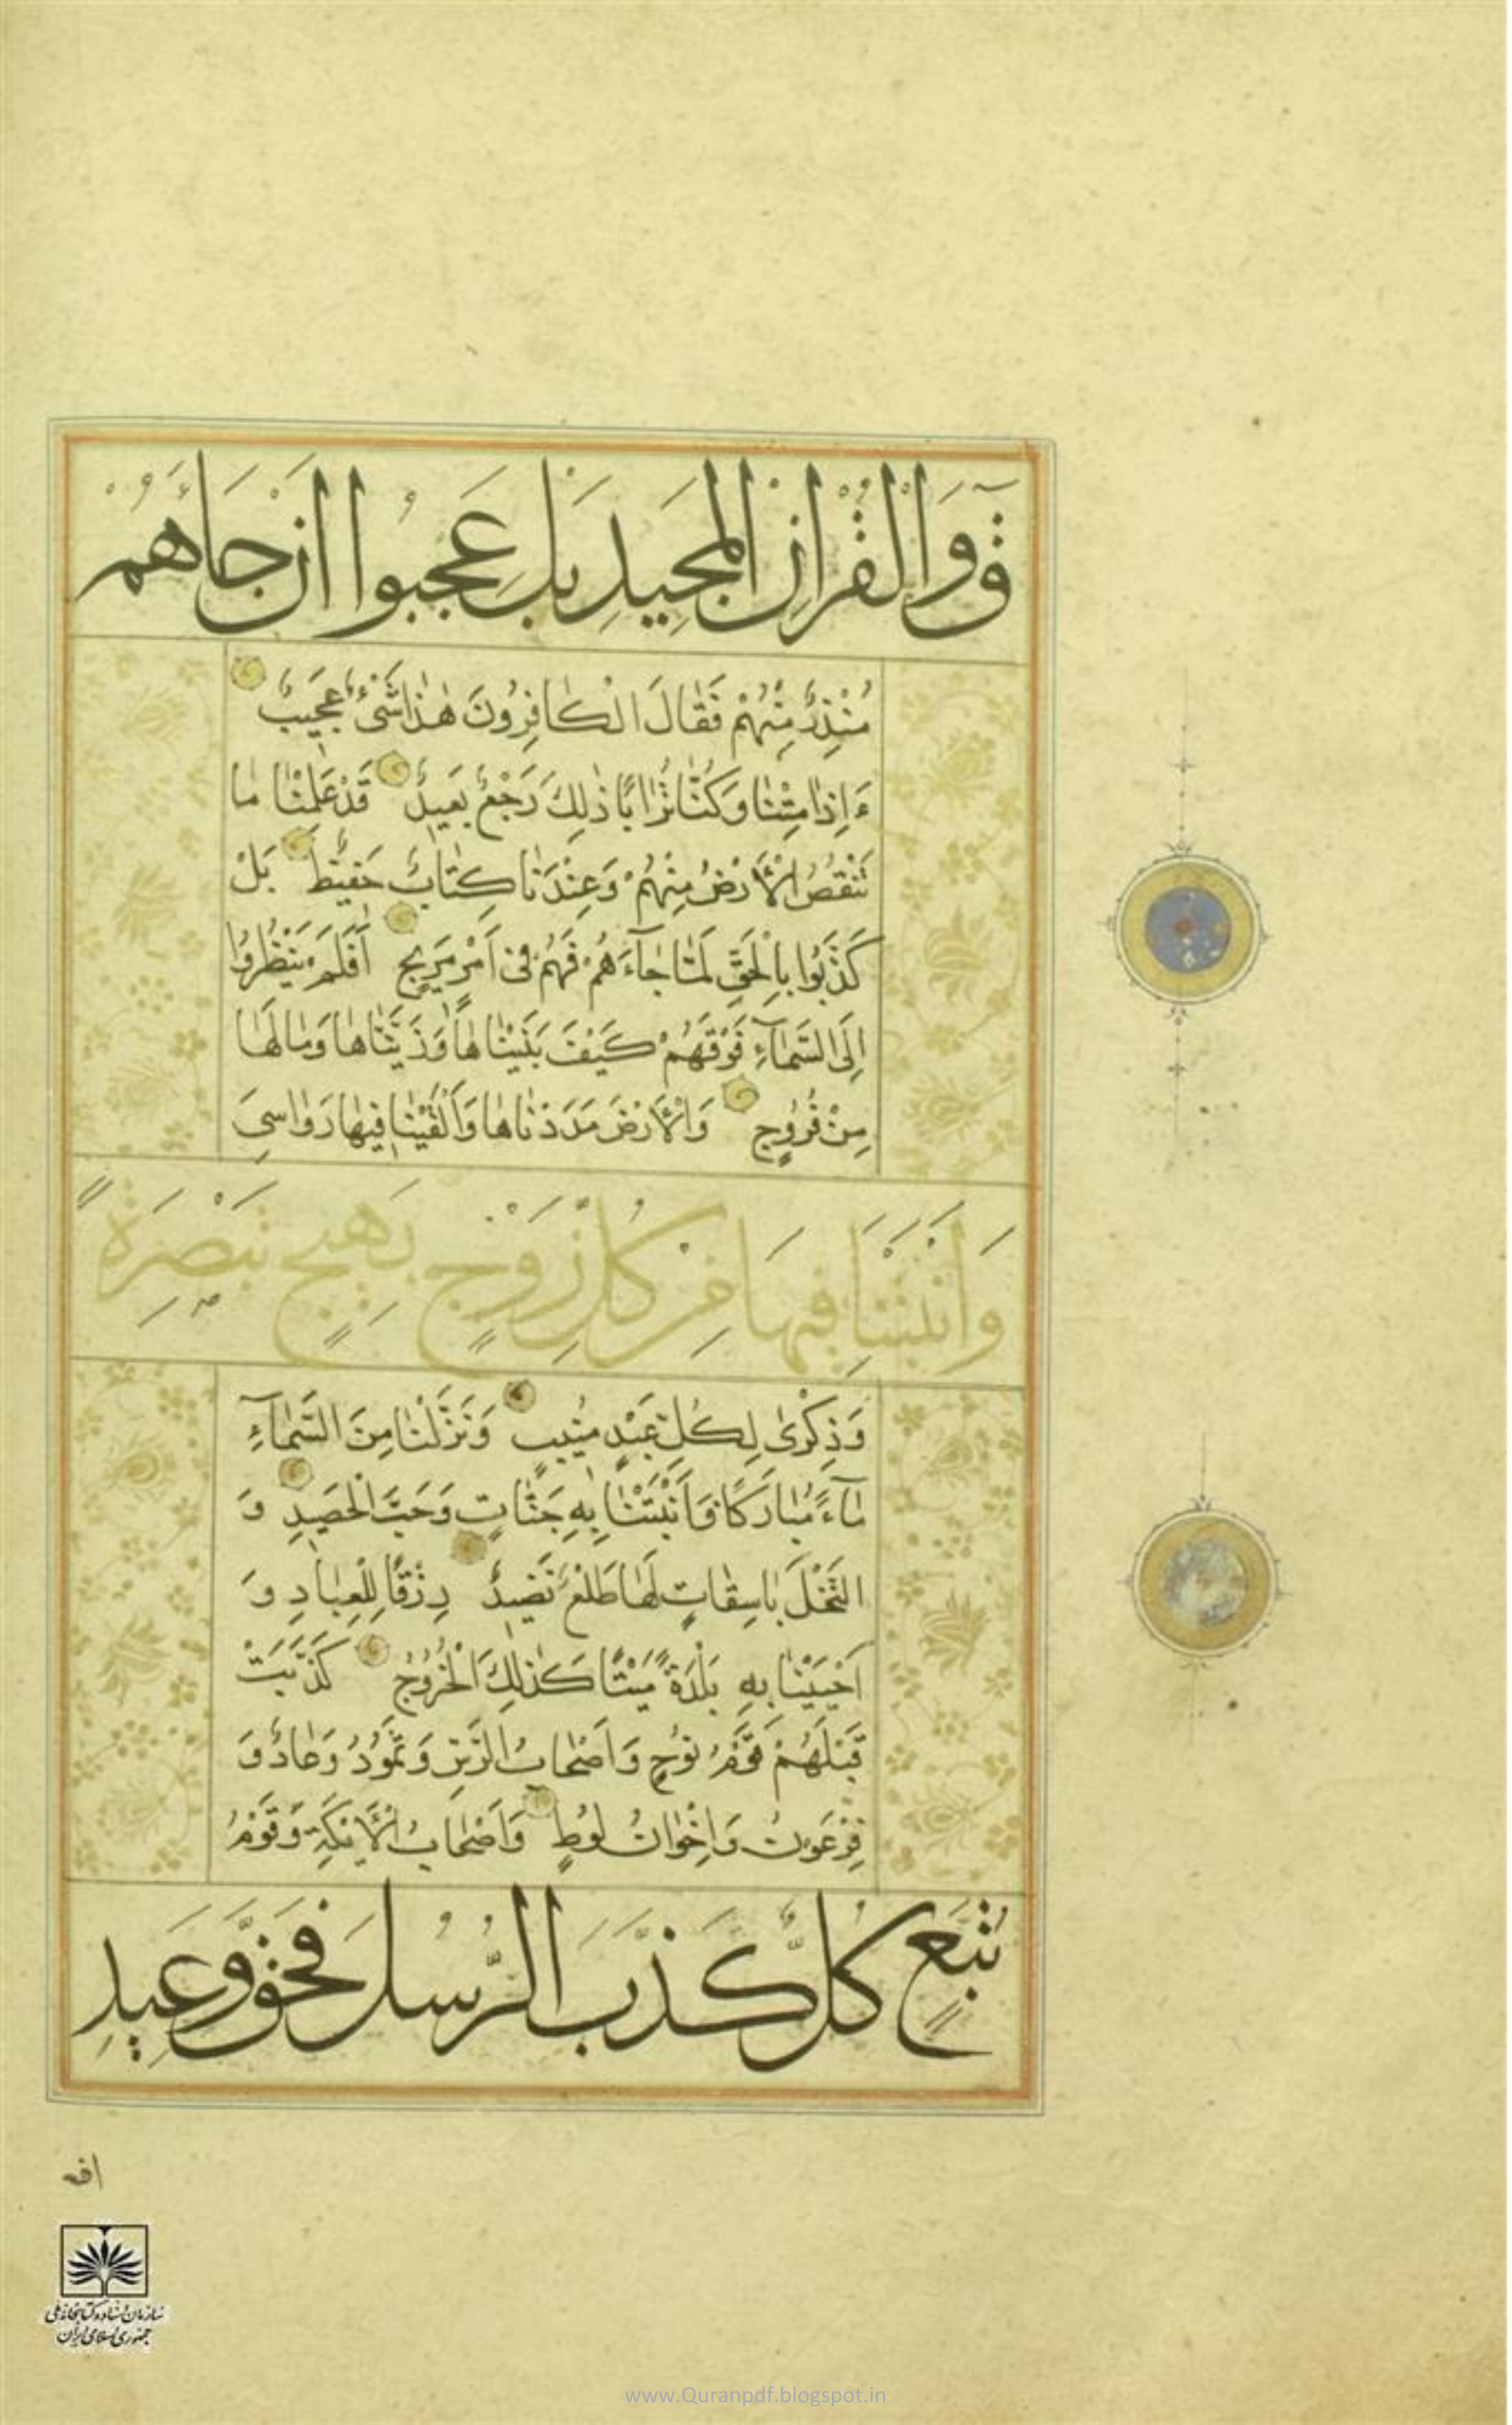 قٓ وَالْقُرْاٰنِ الْمَجِيدِ بَلْ عَجِبُوا اَنْ جَاءَهُمْ
مُنْذِرٌ مِنْهُمْ فَقَالَ الْكَافِرُونَ هٰذَا شَیْءٌ عَجِيبٌ
ءَاِذَا مِتْنَا وَكُنَّا تُرَابًا ذٰلِكَ رَجْعٌ بَعِيدٌ قَدْ عَلِمْنَا مَا
تَنْقُصُ الْاَرْضُ مِنْهُمْ وَعِنْدَنَا كِتَابٌ حَفِيظٌ بَلْ
كَذَّبُوا بِالْحَقِّ لَمَّا جَآءَهُمْ فَهُمْ فِی اَمْرٍ مَرِيجٍ اَفَلَمْ يَنْظُرُوا
اِلَى السَّمَآءِ فَوْقَهُمْ كَيْفَ بَنَيْنَاهَا وَزَيَّنَّاهَا وَمَا لَهَا
مِنْ فُرُوجٍ وَالْاَرْضَ مَدَدْنَاهَا وَاَلْقَيْنَا فِيهَا رَوَاسِیَ
وَاَنْبَتْنَا فِيهَا مِنْ كُلِّ زَوْجٍ بَهِيجٍ تَبْصِرَةً
وَذِكْرٰى لِكُلِّ عَبْدٍ مُنِيبٍ وَنَزَّلْنَا مِنَ السَّمَآءِ
مَآءً مُبَارَكًا فَاَنْبَتْنَا بِهِ جَنَّاتٍ وَحَبَّ الْحَصِيدِ وَ
النَّخْلَ بَاسِقَاتٍ لَهَا طَلْعٌ نَضِيدٌ رِزْقًا لِلْعِبَادِ وَ
اَحْيَيْنَا بِهِ بَلْدَةً مَيْتًا كَذٰلِكَ الْخُرُوجُ كَذَّبَتْ
قَبْلَهُمْ قَوْمُ نُوحٍ وَاَصْحَابُ الرَّسِّ وَثَمُودُ وَعَادٌ وَ
فِرْعَوْنُ وَاِخْوَانُ لُوطٍ وَاَصْحَابُ الْاَيْكَةِ وَقَوْمُ
تُبَّعٍ كُلٌّ كَذَّبَ الرُّسُلَ فَحَقَّ وَعِيدِ
افع
سازمان اسناد و کتابخانه ملی
جمهوری اسلامی ایران
www.Quranpdf.blogspot.in